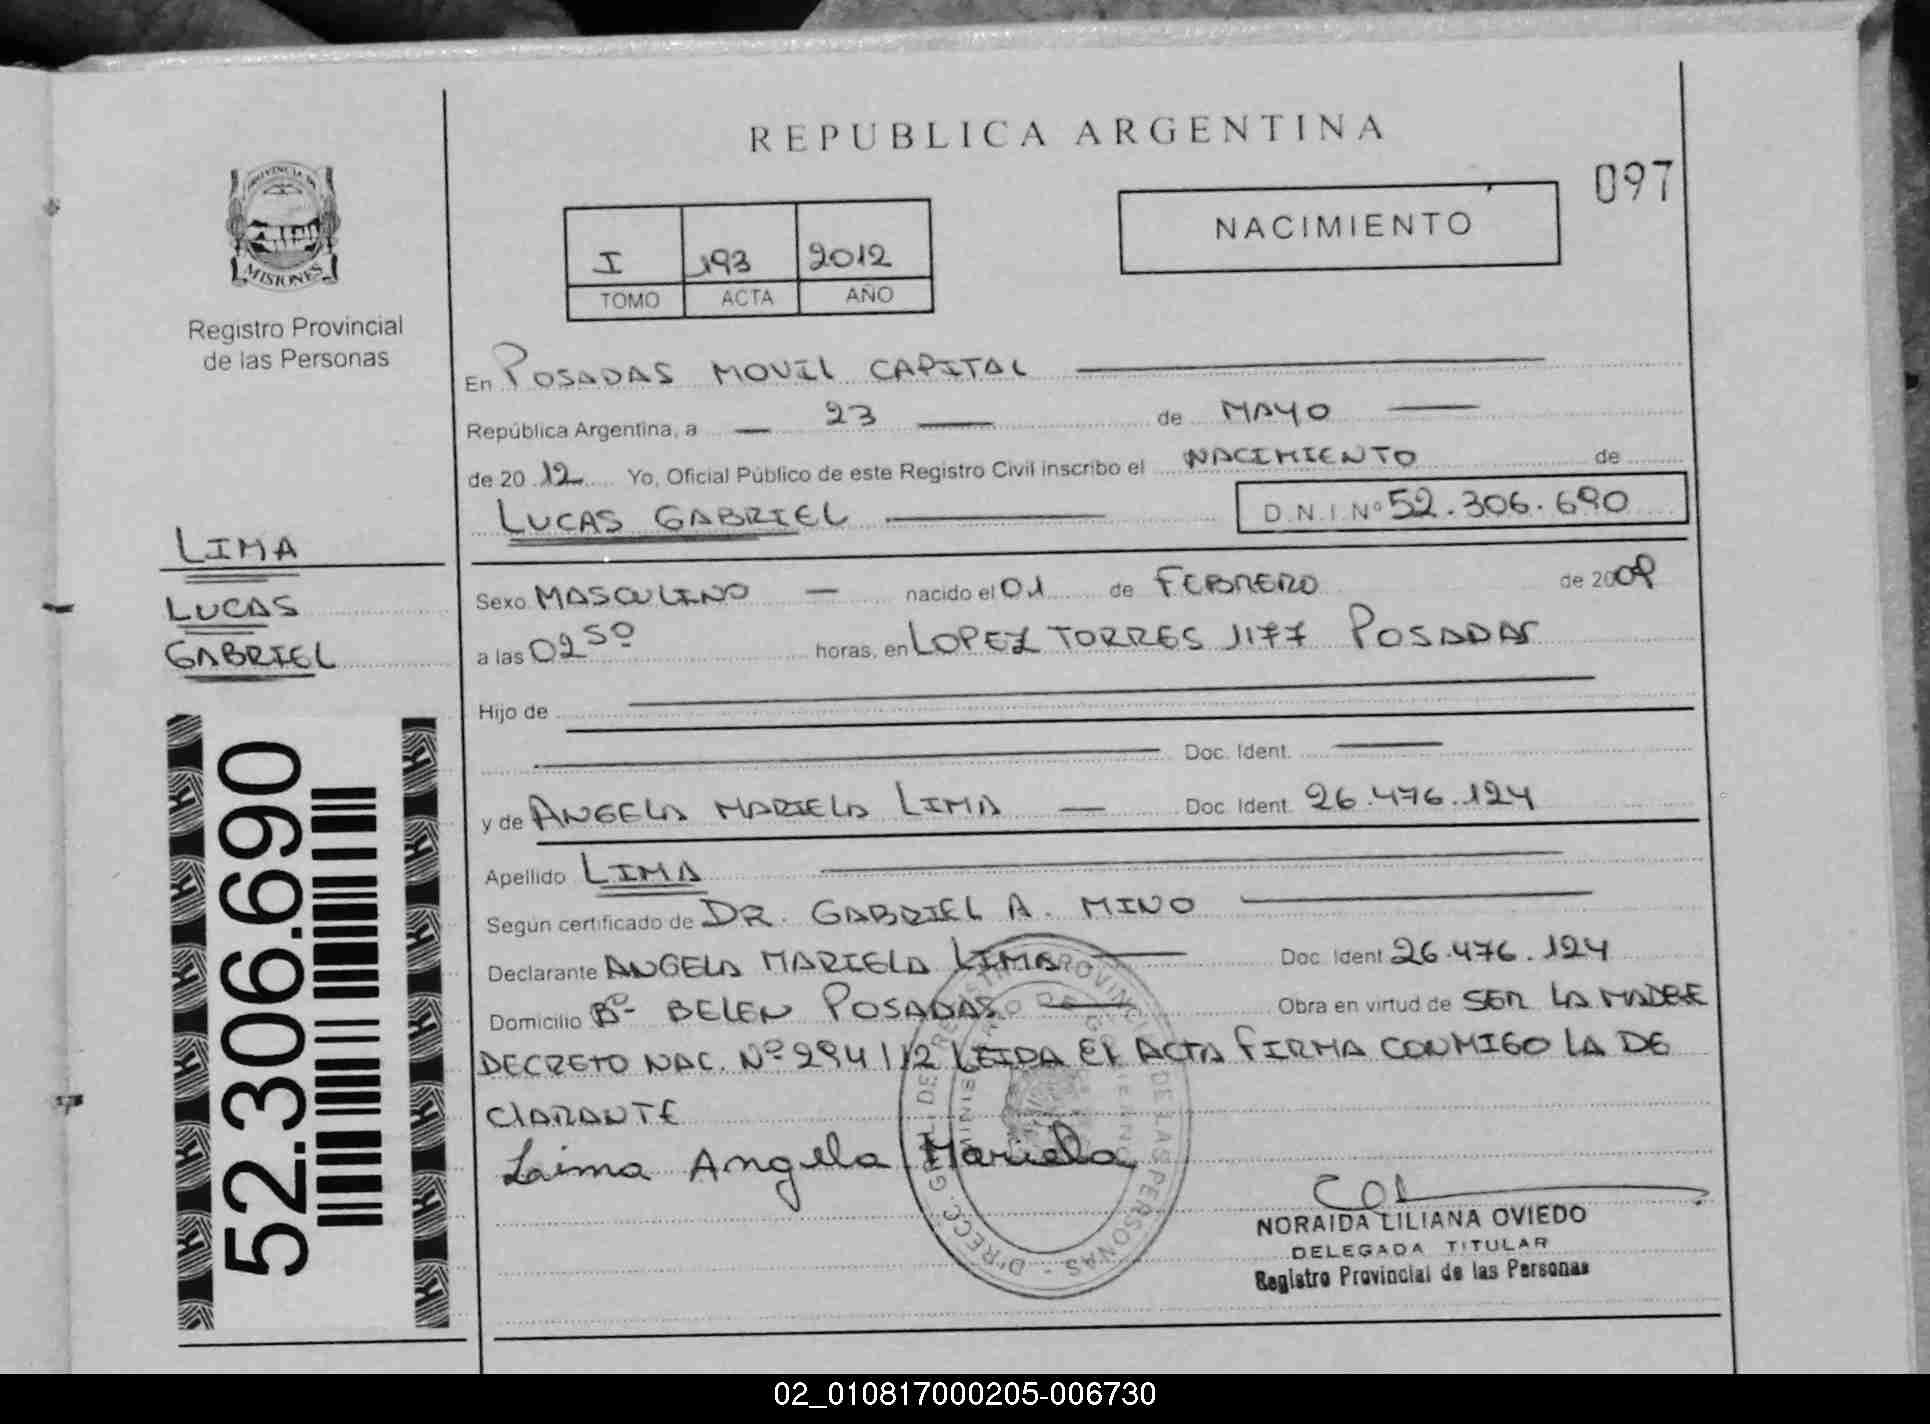 REPUBLICA ARGENTINA
097
NACIMIENTO
I 193 2012
TOMO ACTA AÑO
PROVINCIA DE
MISIONES
Registro Provincial
de las Personas
En POSADAS MOVIL CAPITAL
República Argentina, a 23 de MAYO
de 20 12 Yo, Oficial Público de este Registro Civil inscribo el NACIMIENTO de
LUCAS GABRIEL D.N.I. Nº 52.306.690
LIMA
LUCAS
GABRIEL
Sexo MASCULINO nacido el 01 de FEBRERO de 2009
a las 02 50 horas, en LOPEZ TORRES 1177 POSADAS
Hijo de
Doc. Ident.
y de ANGELA MARIELA LIMA Doc. Ident. 26.476.124
Apellido LIMA
Según certificado de DR. GABRIEL A. MINO
Declarante ANGELA MARIELA LIMA Doc. Ident 26.476.124
Domicilio Bº BELEN POSADAS Obra en virtud de SER LA MADRE
DECRETO NAC. Nº 294/12 LEIDA EL ACTA FIRMA CONMIGO LA DE
CLARANTE
Lima Angela Mariela
NORAIDA LILIANA OVIEDO
DELEGADA TITULAR
Registro Provincial de las Personas
52.306.690
02_010817000205-006730